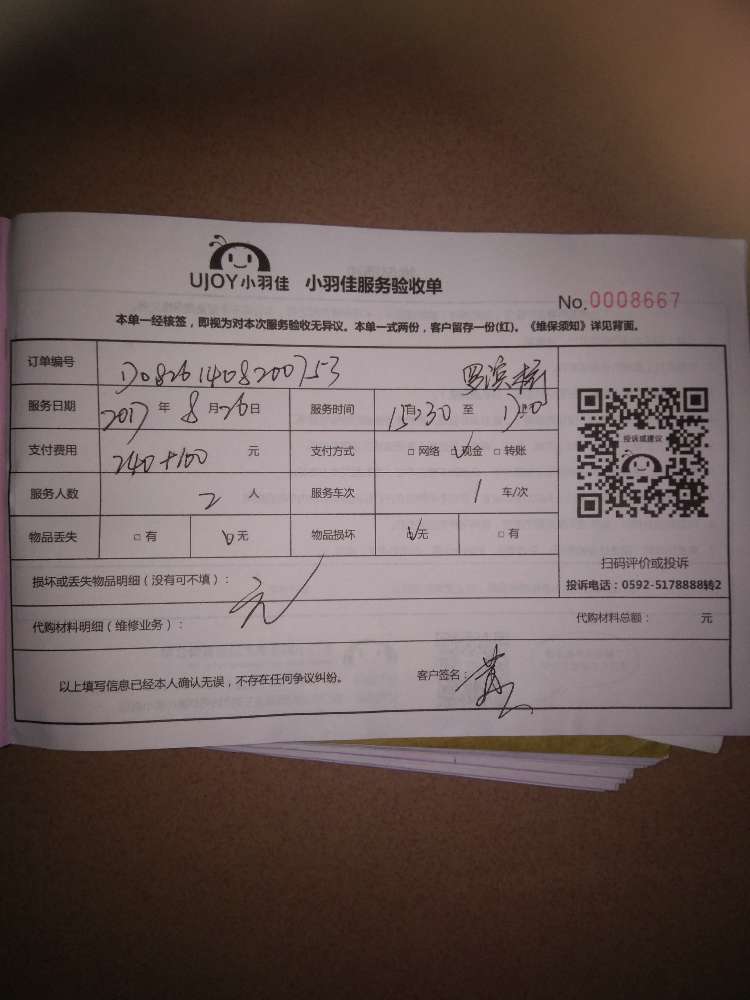 UJOY小羽佳 小羽佳服务验收单
No.0008667
本单一经核签，即视为对本次服务验收无异议。本单一式两份，客户留存一份(红)。《维保须知》详见背面。
订单编号 170826140820075-3
服务日期 2017年8月26日 服务时间 15:30至17:05
支付费用 240+100 元 支付方式 □网络 ☑现金 □转账
服务人数 2 人 服务车次 1 车/次
物品丢失 □有 ☑无 物品损坏 ☑无 □有
投诉或建议
扫码评价或投诉
投诉电话：0592-5178888转2
损坏或丢失物品明细（没有可不填）：
无
代购材料明细（维修业务）： 代购材料总额： 元
以上填写信息已经本人确认无误，不存在任何争议纠纷。 客户签名：